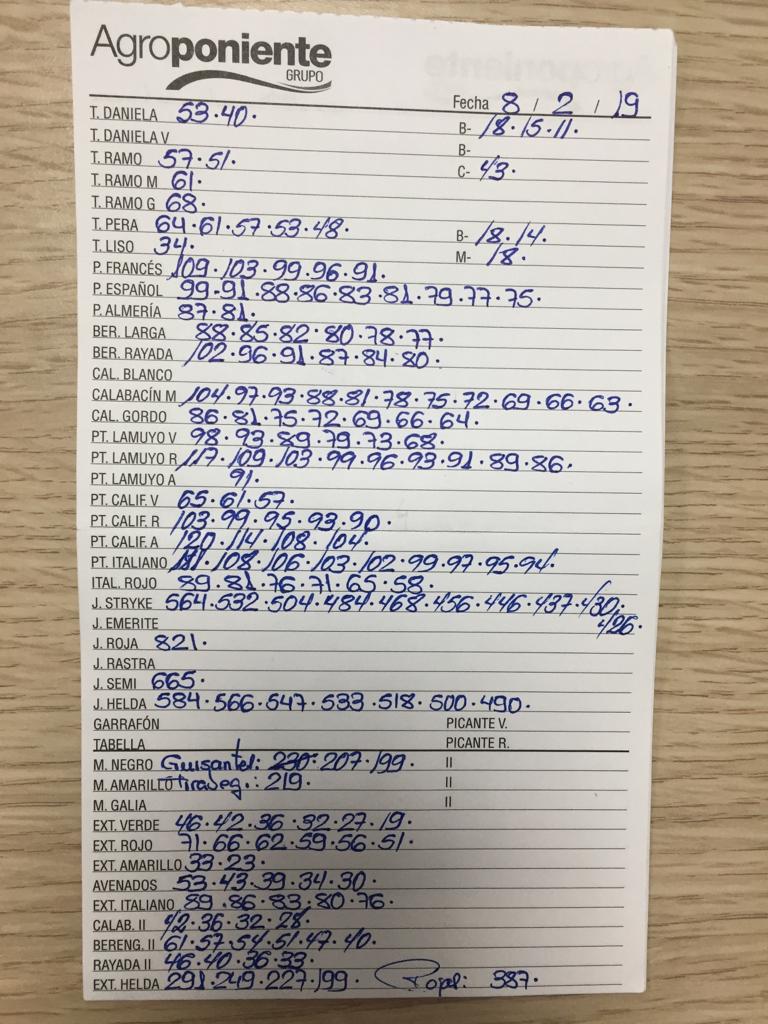 Agroponiente
GRUPO
Fecha 8 / 2 / 19
T. DANIELA 53.40. B- 18.15.11.
T. DANIELA V B-
T. RAMO 57.51. C- 43.
T. RAMO M 61.
T. RAMO G 68.
T. PERA 64.61.57.53.48. B- 18.14.
T. LISO 34. M- 18.
P. FRANCÉS 109.103.99.96.91.
P. ESPAÑOL 99.91.88.86.83.81.79.77.75.
P. ALMERÍA 87.81.
BER. LARGA 88.85.82.80.78.77.
BER. RAYADA 102.96.91.87.84.80.
CAL. BLANCO
CALABACÍN M 104.97.93.88.81.78.75.72.69.66.63.
CAL. GORDO 86.81.75.72.69.66.64.
PT. LAMUYO V 98.93.89.79.73.68.
PT. LAMUYO R 117.109.103.99.96.93.91.89.86.
PT. LAMUYO A 91.
PT. CALIF. V 65.61.57.
PT. CALIF. R 103.99.95.93.90.
PT. CALIF. A 120.114.108.104.
PT. ITALIANO 111.108.106.103.102.99.97.95.94.
ITAL. ROJO 89.81.76.71.65.58.
J. STRYKE 564.532.504.484.468.456.446.437.430.
J. EMERITE 426.
J. ROJA 821.
J. RASTRA
J. SEMI 665.
J. HELDA 584.566.547.533.518.500.490.
GARRAFÓN PICANTE V.
TABELLA PICANTE R.
M. NEGRO Guisantel: 230. 207.199. II
M. AMARILLO Tirabeg.: 219. II
M. GALIA II
EXT. VERDE 46.42.36.32.27.19.
EXT. ROJO 71.66.62.59.56.51.
EXT. AMARILLO 33.23.
AVENADOS 53.43.39.34.30.
EXT. ITALIANO 89.86.83.80.76.
CALAB. II 42.36.32.28.
BERENG. II 61.57.54.51.47.40.
RAYADA II 46.40.36.33.
EXT. HELDA 291.249.227.199. 387.